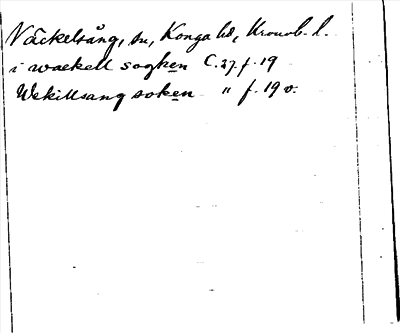 Väckelsång, sn, Konga hd, Kronob. l.
i waekell sogken C. 27. f. 19
Wekillsang soken " f. 19 v.